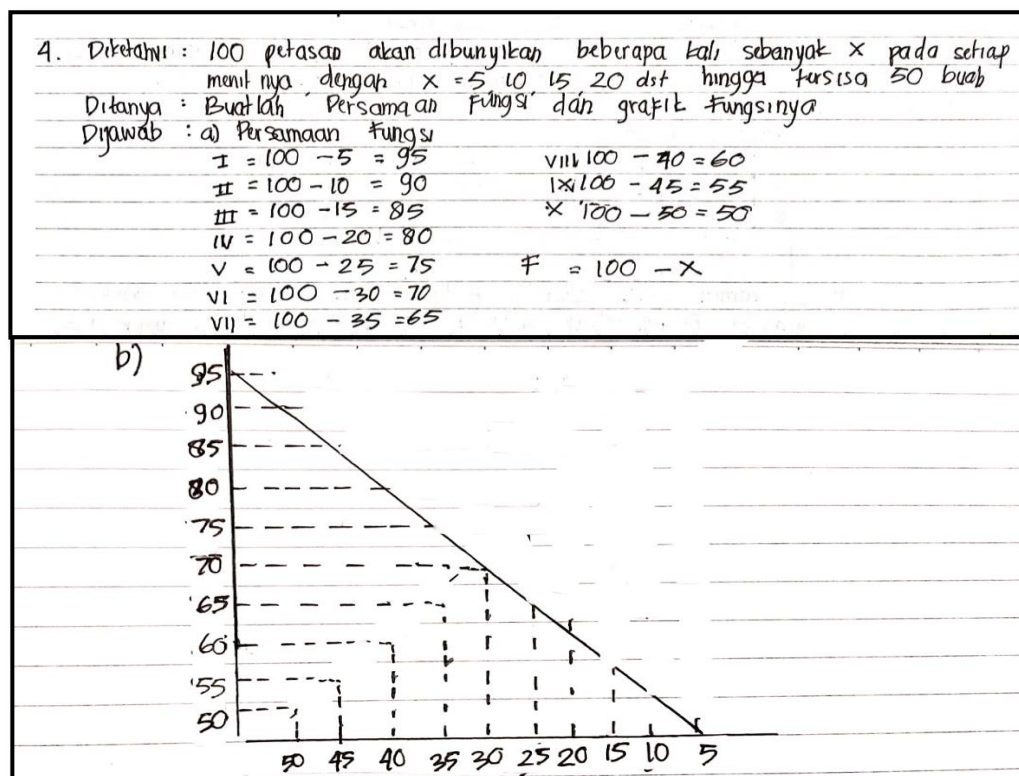 4. Diketahui : 100 petasan akan dibunyikan beberapa kali sebanyak x pada setiap
menit nya dengan x = 5 10 15 20 dst hingga tersisa 50 buah
Ditanya : Buatlah Persamaan Fungsi dan grafik Fungsinya
Dijawab : a) Persamaan Fungsi
I = 100 - 5 = 95
II = 100 - 10 = 90
III = 100 - 15 = 85
IV = 100 - 20 = 80
V = 100 - 25 = 75
VI = 100 - 30 = 70
VII = 100 - 35 = 65
VIII 100 - 40 = 60
IX 100 - 45 = 55
X 100 - 50 = 50
F = 100 - x
b)
95
90
85
80
75
70
65
60
55
50
50 45 40 35 30 25 20 15 10 5